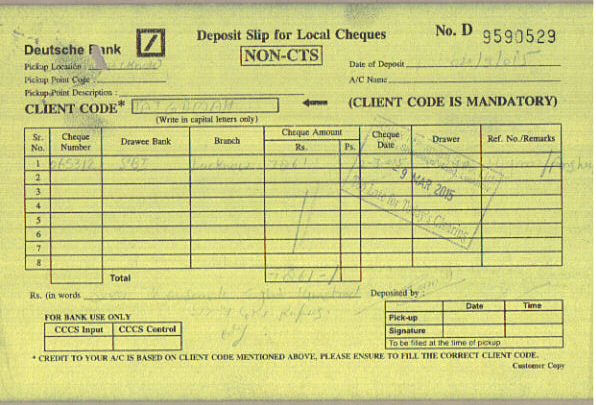 Deutsche Bank
Deposit Slip for Local Cheques
NON-CTS
No. D 9590529
Pickup Location :
Pickup Point Code :
Pickup-Point Description :
Date of Deposit
A/C Name
CLIENT CODE*
(Write in capital letters only)
(CLIENT CODE IS MANDATORY)
Sr. No. Cheque Number Drawee Bank Branch Cheque Amount Rs. Ps. Cheque Date Drawer Ref. No./Remarks
1 SBI Lucknow 7861
2
3
4
5
6
7
8
9 MAR 2015
Too Late for Today's Clearing
Total 7861-/
Rs. (in words
Deposited by :
FOR BANK USE ONLY
CCCS Input CCCS Control
Date Time
Pick-up
Signature
To be filled at the time of pickup
* CREDIT TO YOUR A/C IS BASED ON CLIENT CODE MENTIONED ABOVE, PLEASE ENSURE TO FILL THE CORRECT CLIENT CODE.
Customer Copy